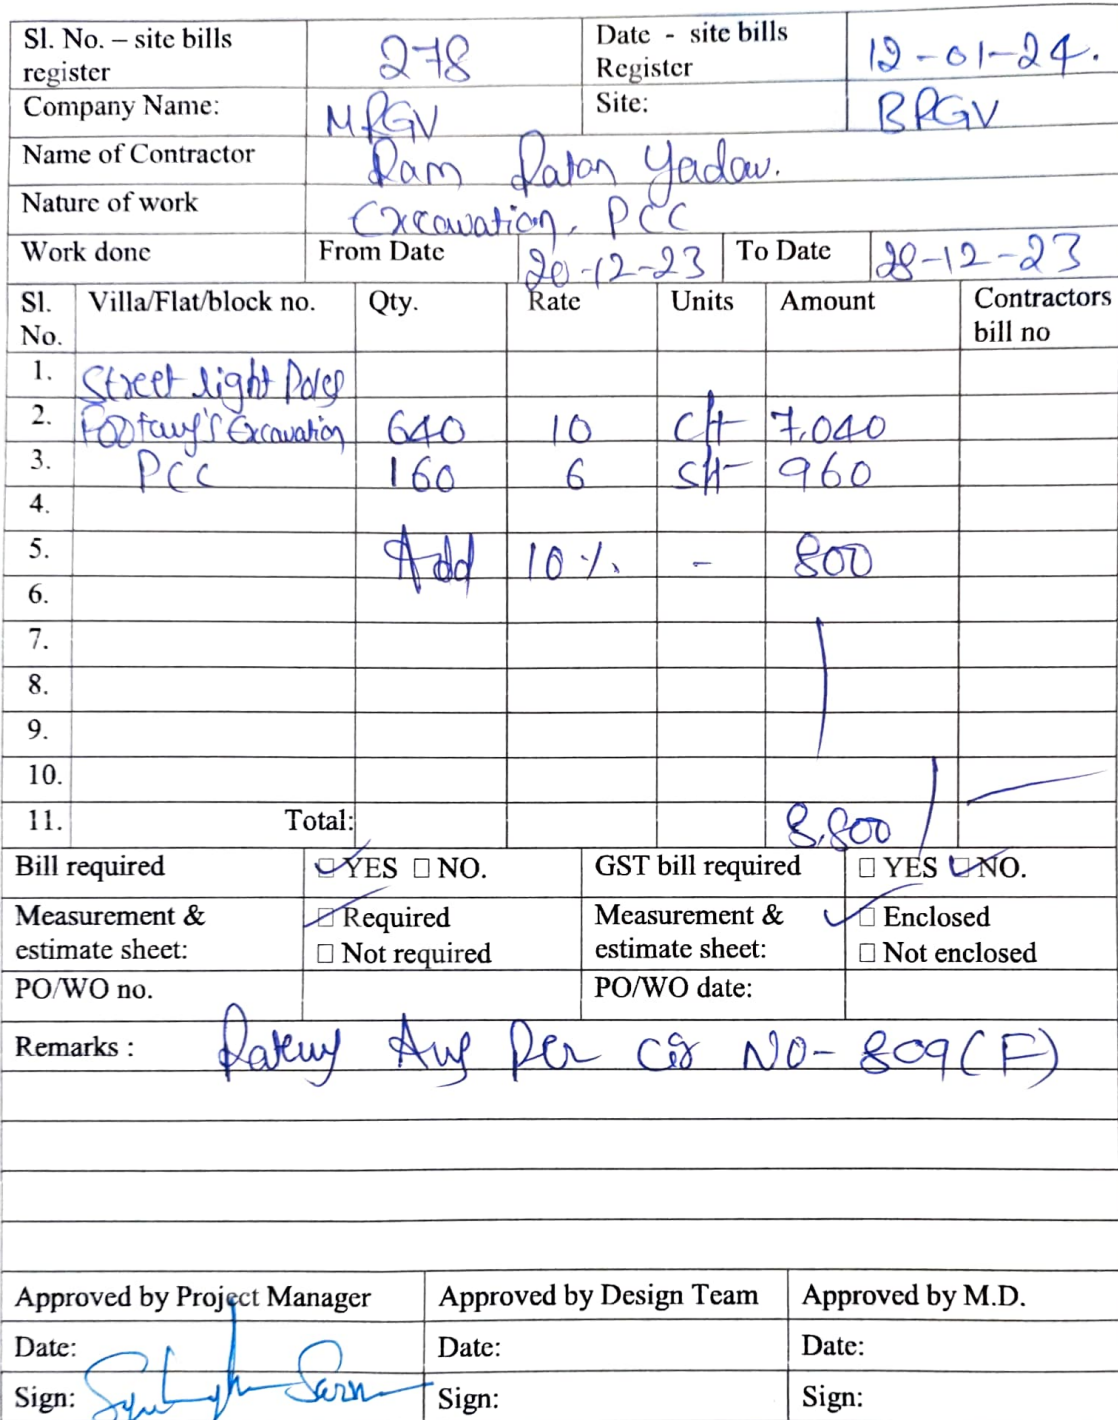 Sl. No. – site bills register 278 Date - site bills Register 12-01-24.
Company Name: MRGV Site: BRGV
Name of Contractor Ram Ratan Yadav.
Nature of work Excavation, PCC
Work done From Date 20-12-23 To Date 28-12-23
Sl. No. Villa/Flat/block no. Qty. Rate Units Amount Contractors bill no
1. Street light Poles
2. Excavation 640 10 cft 7,040
3. PCC 160 6 sft 960
4.
5. Add 10 %. - 800
6.
7.
8.
9.
10.
11. Total: 8,800
Bill required ☐ YES ☐ NO. GST bill required ☐ YES ☐ NO.
Measurement & estimate sheet: ☐ Required ☐ Not required Measurement & estimate sheet: ☐ Enclosed ☐ Not enclosed
PO/WO no. PO/WO date:
Remarks : Per Cir NO- 809(F)
Approved by Project Manager Approved by Design Team Approved by M.D.
Date: Date: Date:
Sign: Sign: Sign: